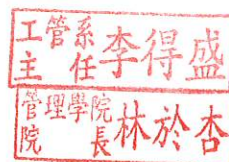 工管系主任李得盛
管理學院院長林於杏